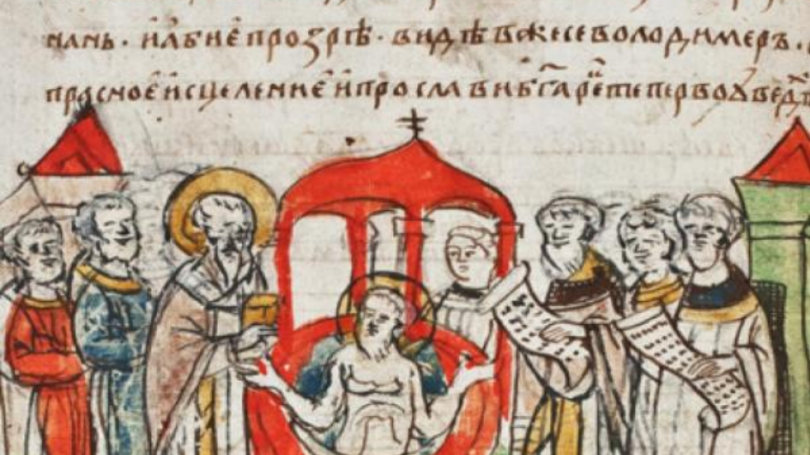 нань · и абиє прозрѣ · видѣвъжесеволодимеръ ·
прасноє исцелениє и прослави б҃га ре҃ теперво увѣдѣ